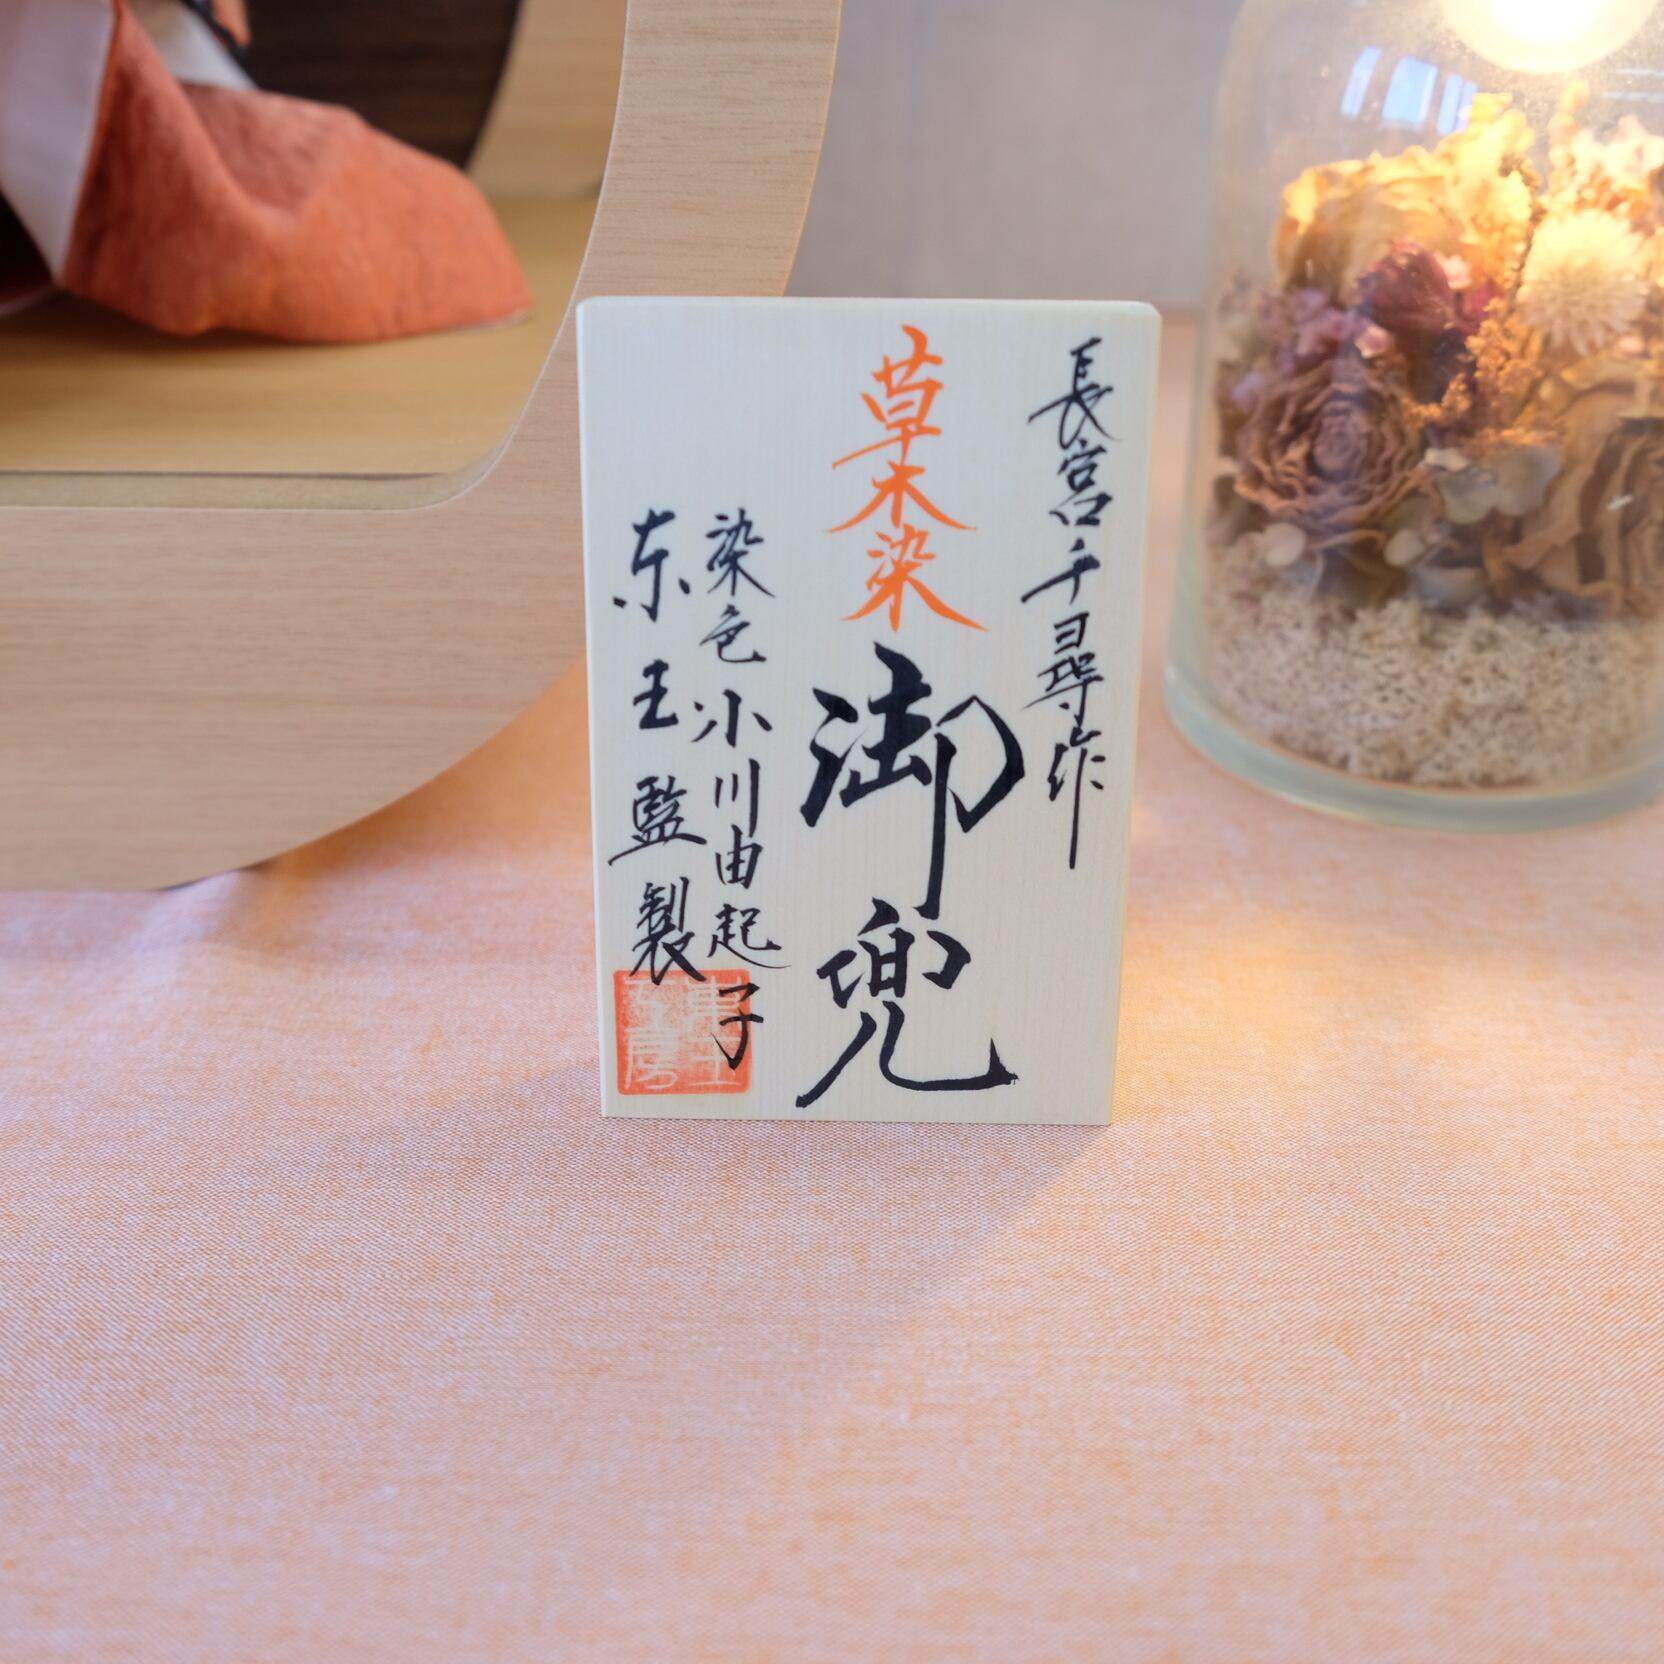 長宮千尋作
草木染
御兜
染色小川由起子
东王監製
東王工房